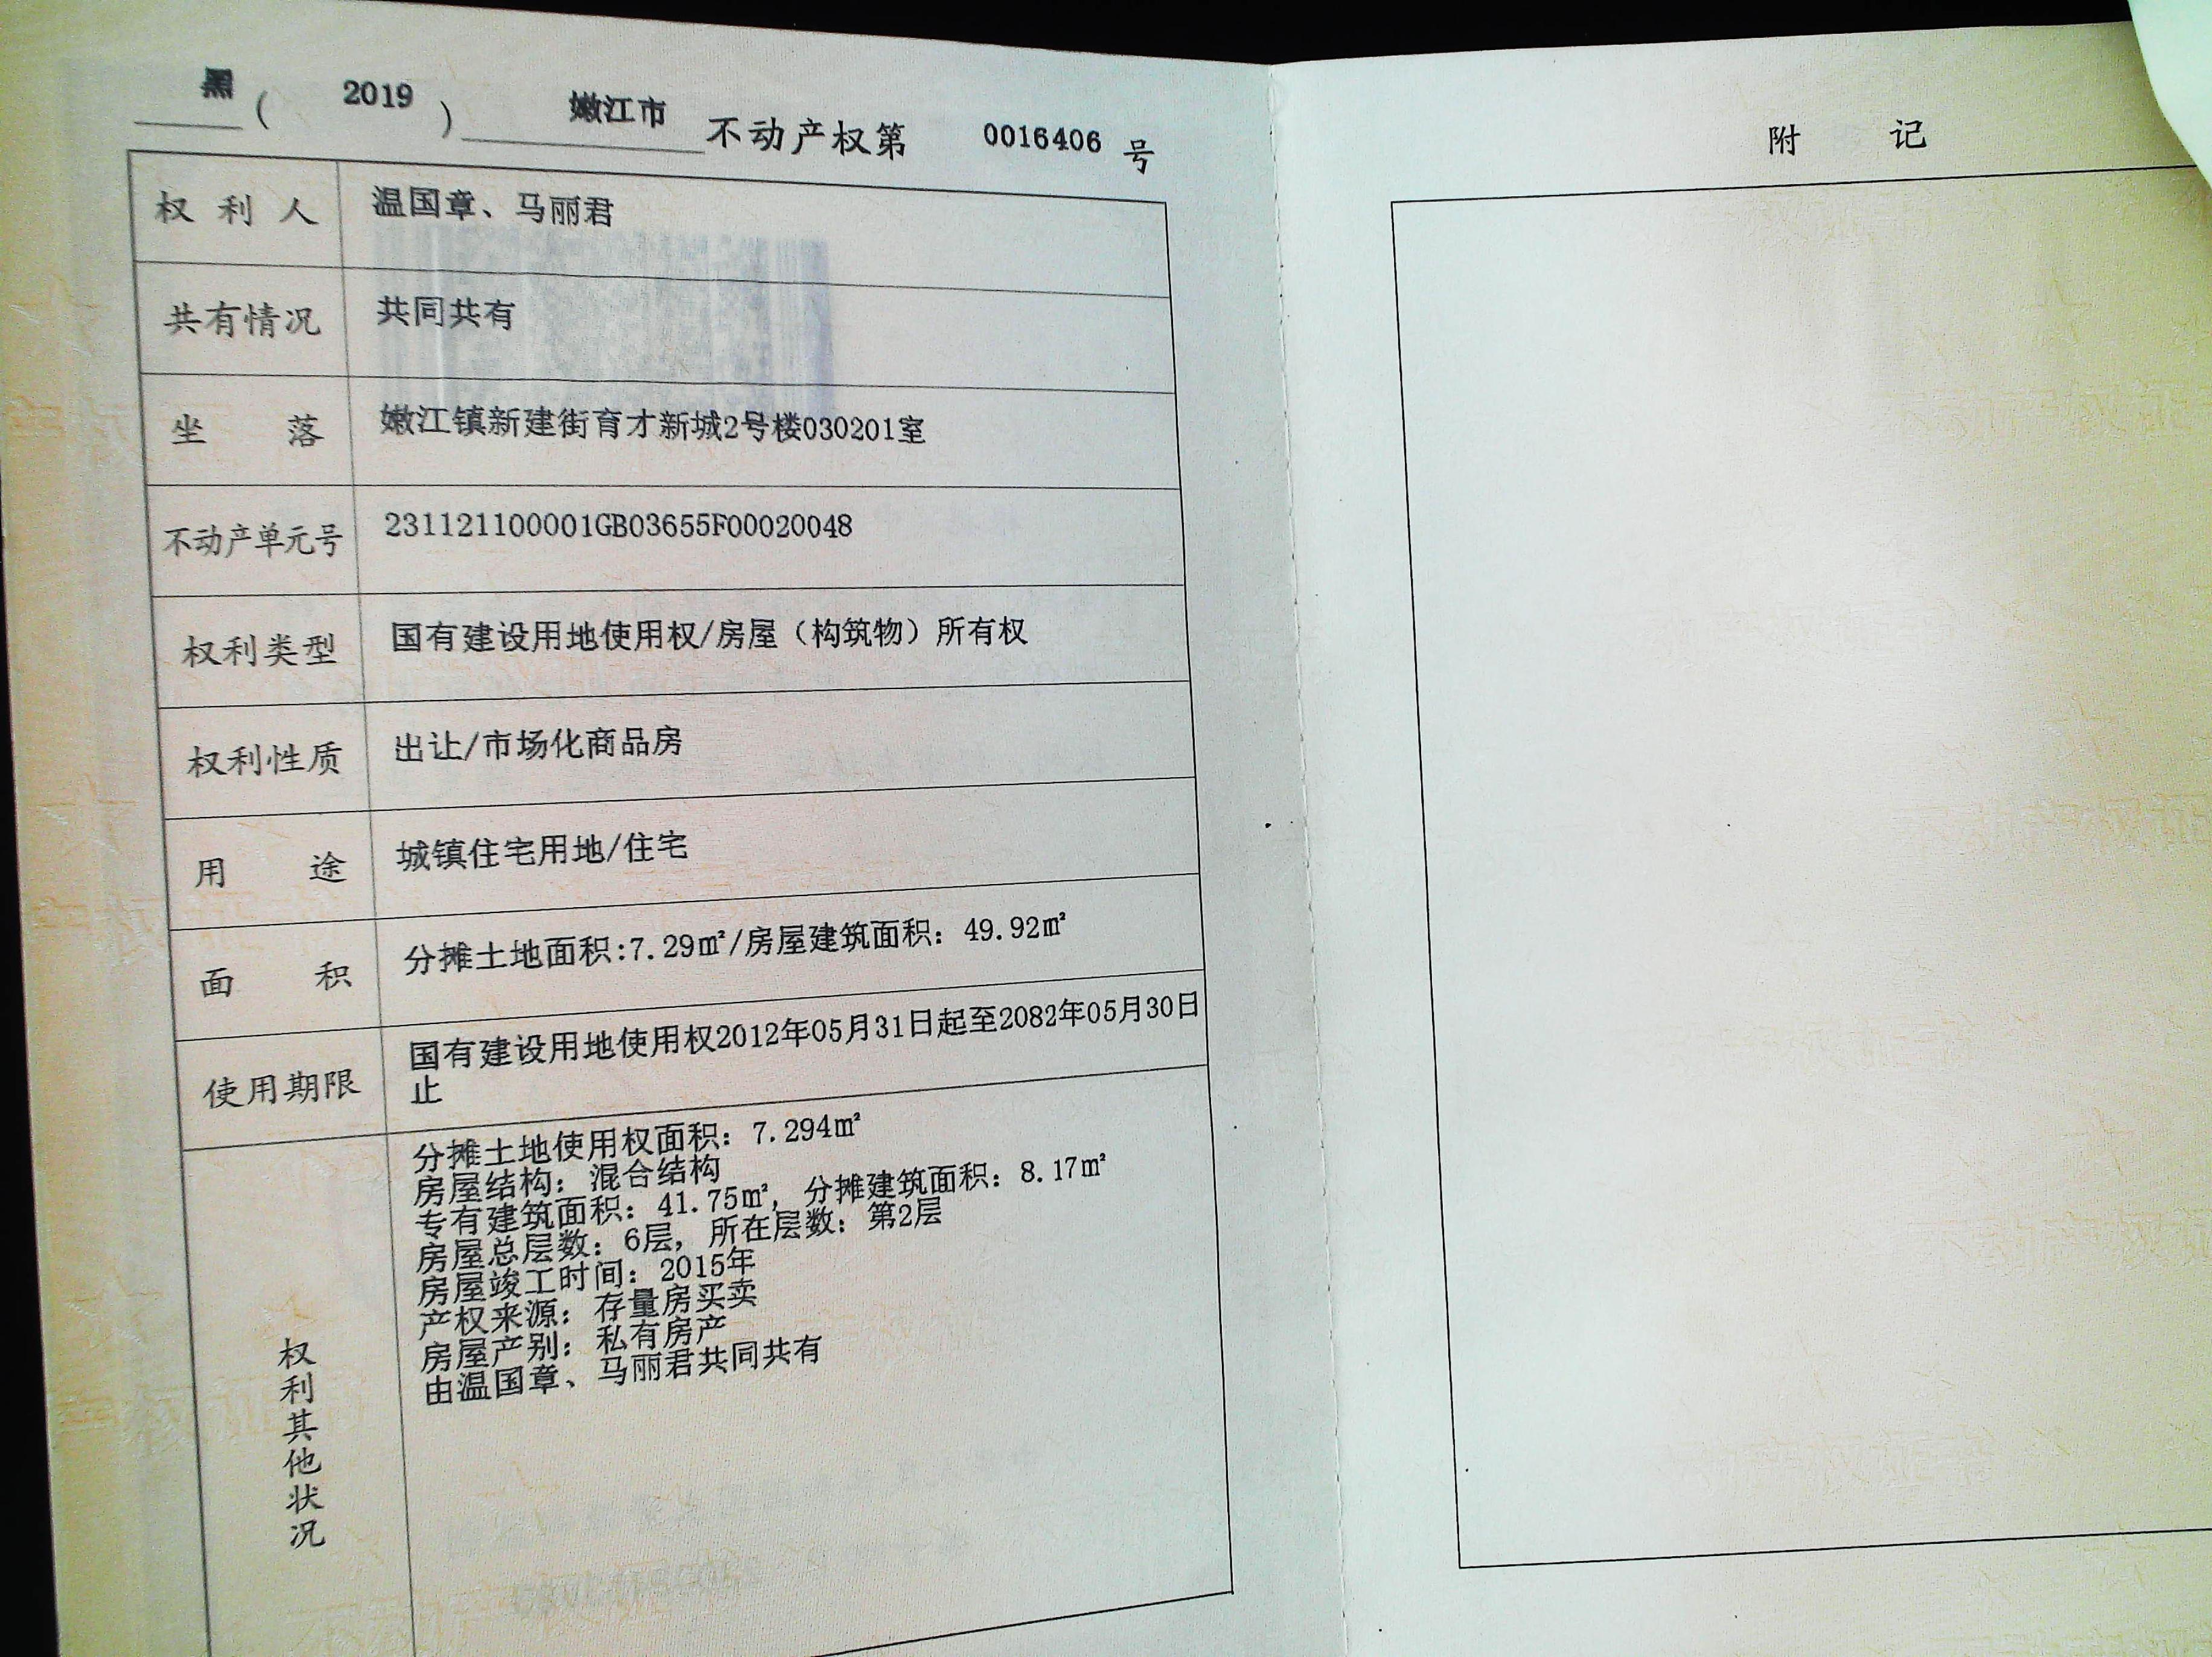 黑（ 2019 ） 嫩江市 不动产权第 0016406 号
权利人 温国章、马丽君
共有情况 共同共有
坐落 嫩江镇新建街育才新城2号楼030201室
不动产单元号 231121100001GB03655F00020048
权利类型 国有建设用地使用权/房屋（构筑物）所有权
权利性质 出让/市场化商品房
用途 城镇住宅用地/住宅
面积 分摊土地面积:7.29㎡/房屋建筑面积：49.92㎡
使用期限 国有建设用地使用权2012年05月31日起至2082年05月30日
止
权利其他状况
分摊土地使用权面积：7.294㎡
房屋结构：混合结构
专有建筑面积：41.75㎡，分摊建筑面积：8.17㎡
房屋总层数：6层，所在层数：第2层
房屋竣工时间：2015年
产权来源：存量房买卖
房屋产别：私有房产
由温国章、马丽君共同共有
附记